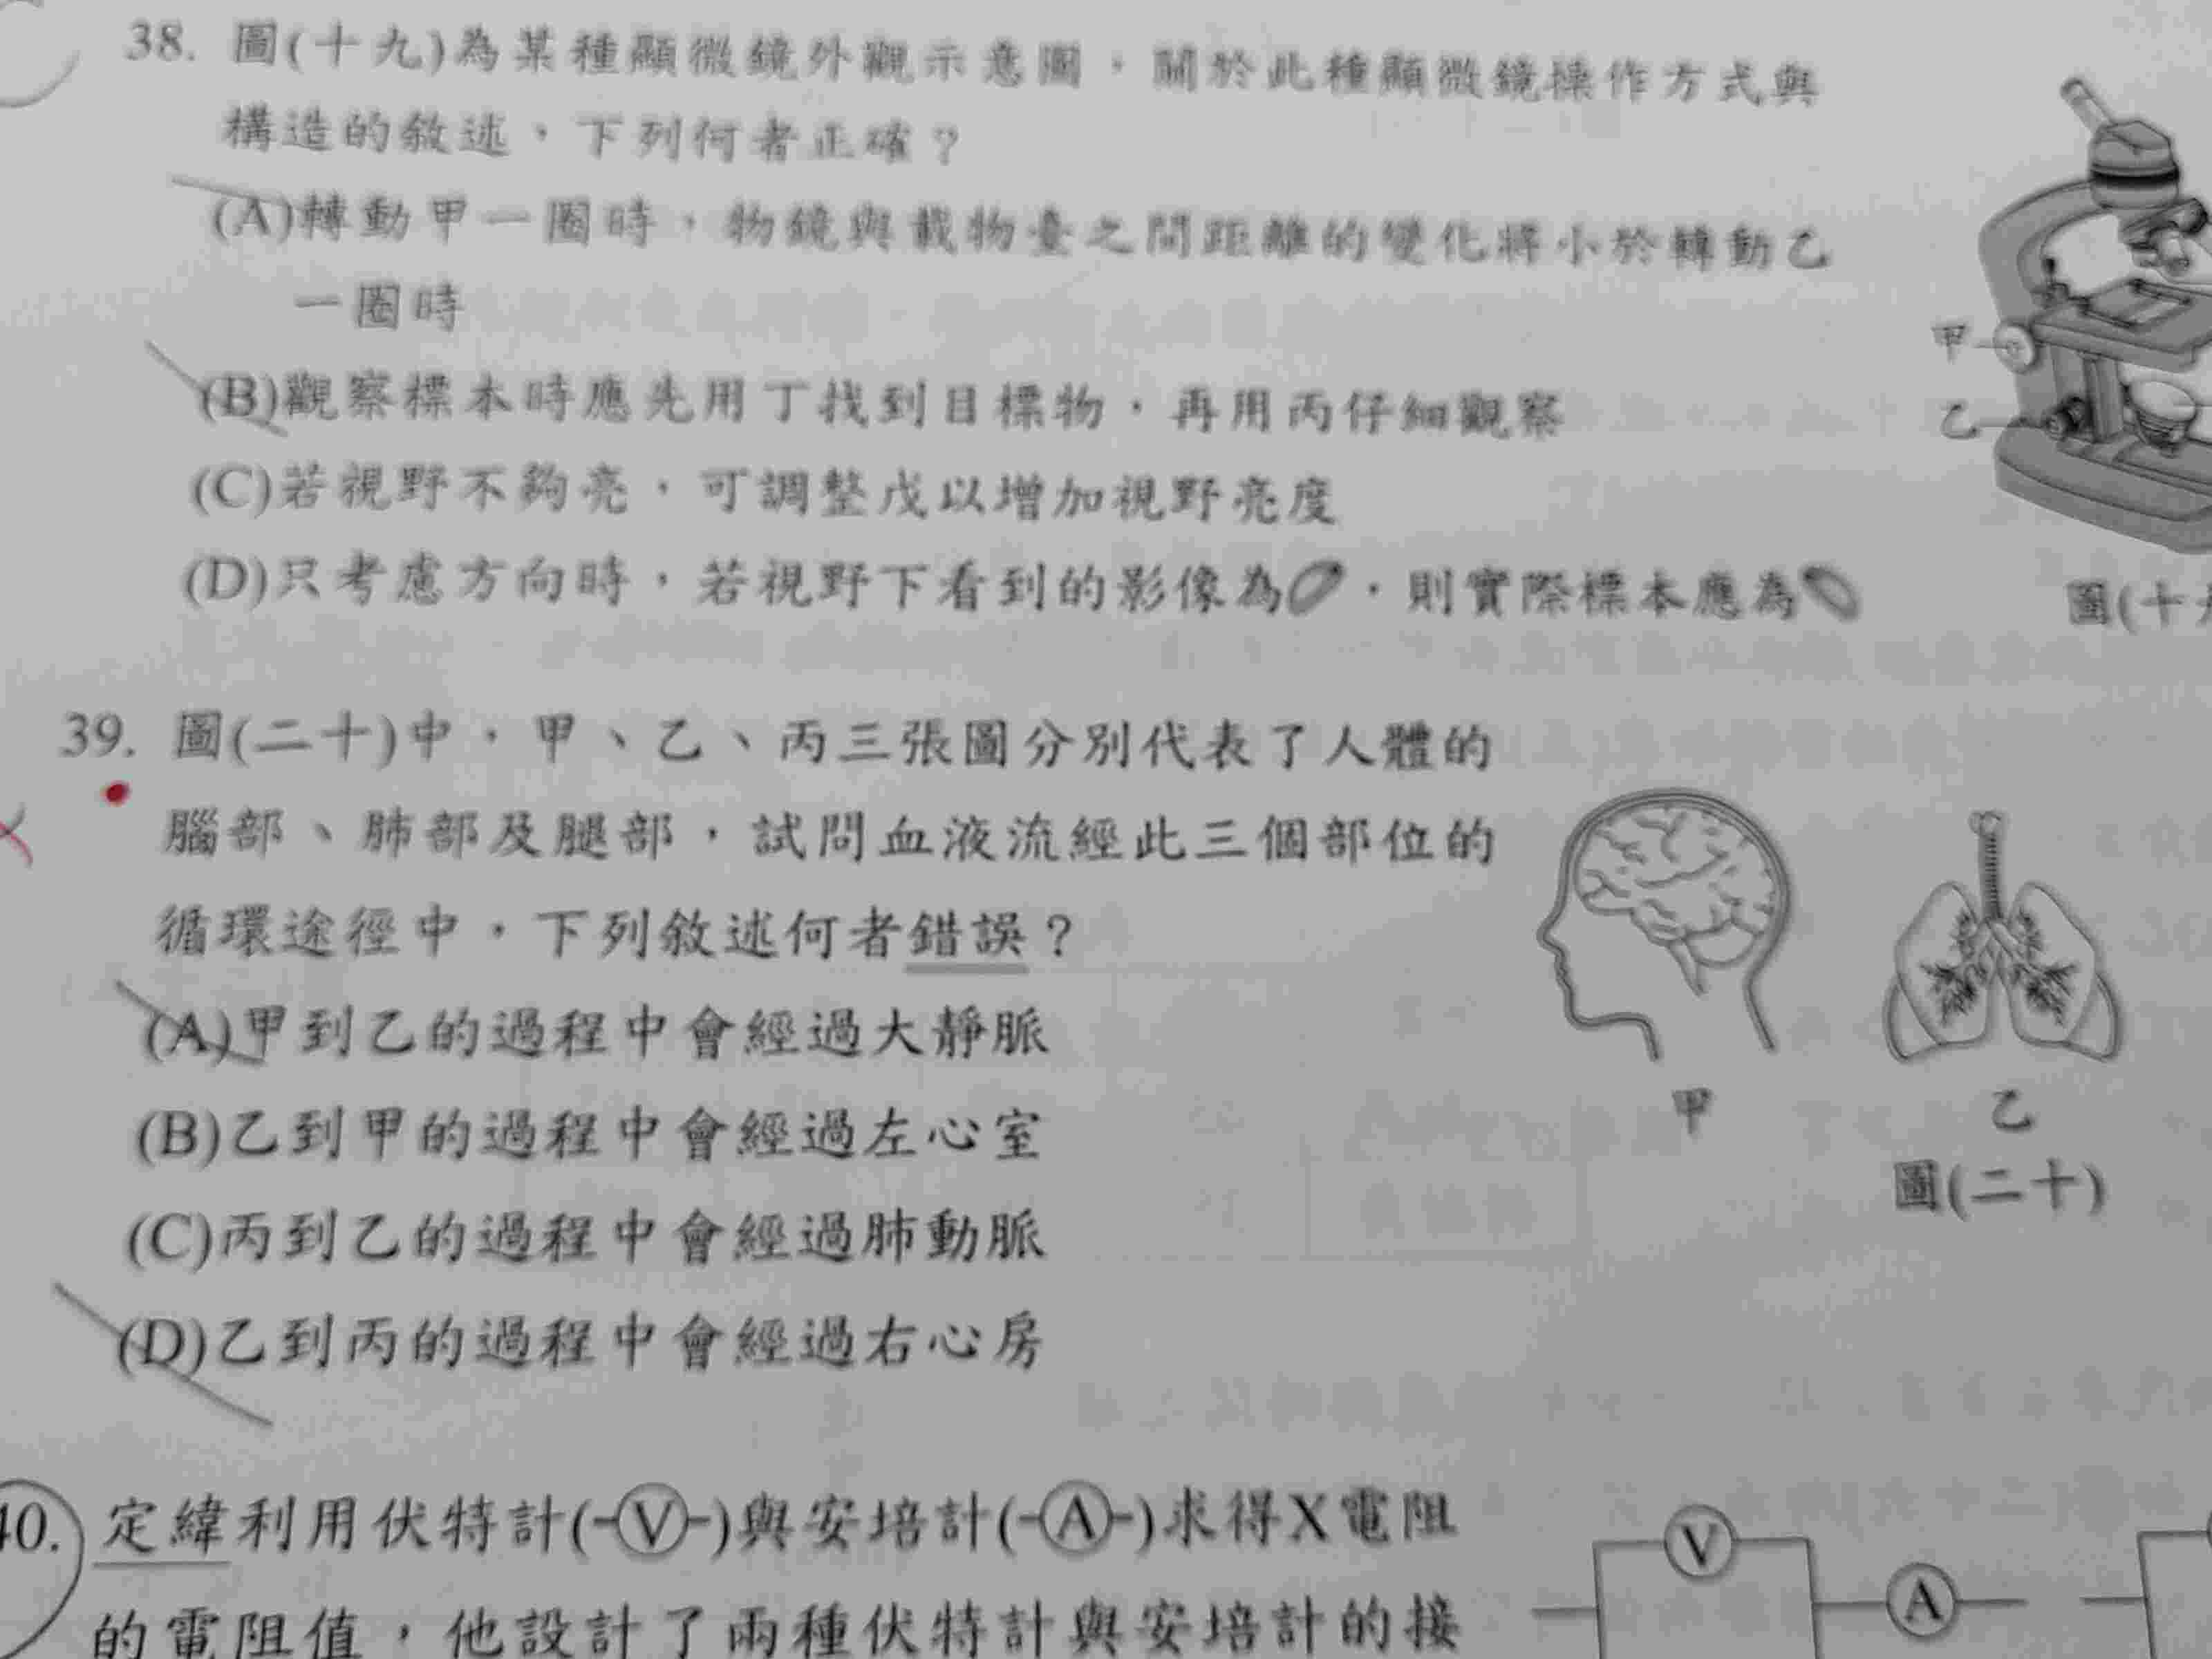 38. 圖(十九)為某種顯微鏡外觀示意圖，關於此種顯微鏡操作方式與
構造的敘述，下列何者正確？
(A)轉動甲一圈時，物鏡與載物臺之間距離的變化將小於轉動乙
一圈時
(B)觀察標本時應先用丁找到目標物，再用丙仔細觀察
(C)若視野不夠亮，可調整戊以增加視野亮度
(D)只考慮方向時，若視野下看到的影像為，則實際標本應為
甲
乙
圖(十
39. 圖(二十)中，甲、乙、丙三張圖分別代表了人體的
腦部、肺部及腿部，試問血液流經此三個部位的
循環途徑中，下列敘述何者錯誤？
(A)甲到乙的過程中會經過大靜脈
(B)乙到甲的過程中會經過左心室
(C)丙到乙的過程中會經過肺動脈
(D)乙到丙的過程中會經過右心房
甲
乙
圖(二十)
40. 定緯利用伏特計(-V-)與安培計(-A-)求得X電阻
的電阻值，他設計了兩種伏特計與安培計的接
V
A